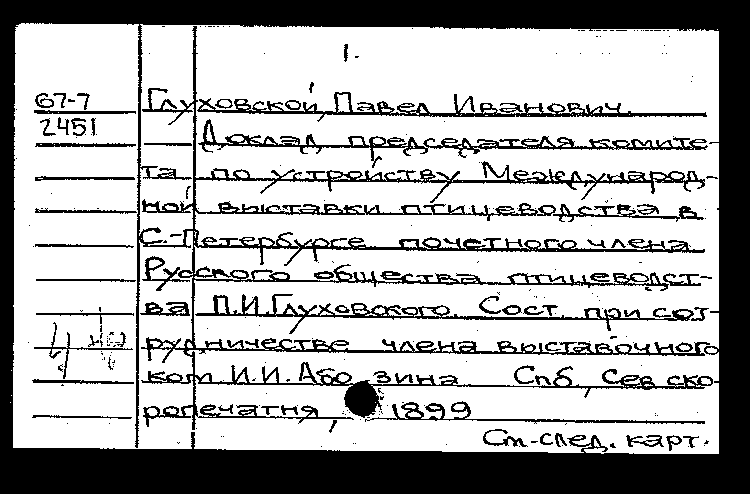 1.
67-7 Глуховской, Павел Иванович.
2451 Доклад председателя комите-
та по устройству Международ-
ной выставки птицеводства в
С.-Петербурге почетного члена
Русского общества птицеводст-
ва П.И.Глуховского. Сост. при сот-
рудничестве члена выставочного
ком. И.И. Або зина Спб., Сев ско-
ропечатня, 1899
См. след. карт.